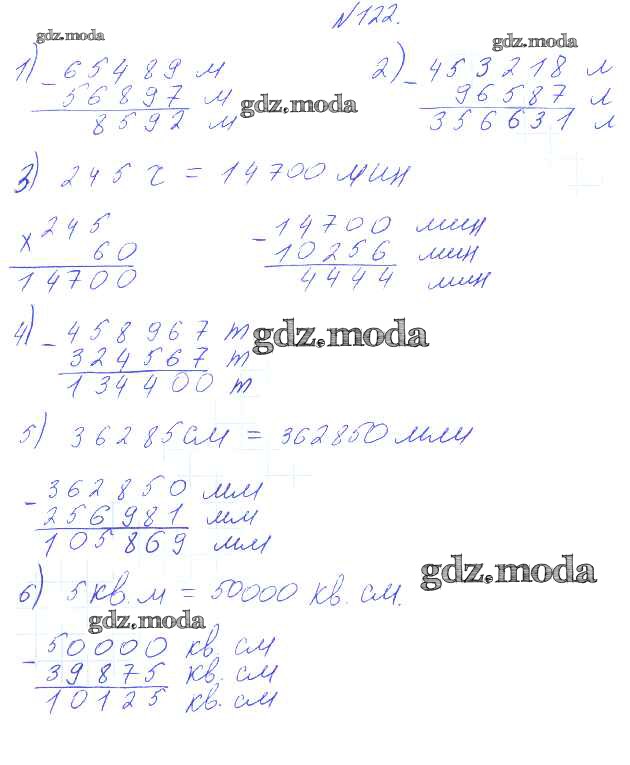 №122.
gdz.moda
gdz.moda
1) - 65489 м
56897 м
8592 м
gdz.moda
2) - 453218 л
96587 л
356631 л
3) 245 ч = 14700 мин
× 245
60
14700
- 14700 мин
10256 мин
4444 мин
4) - 458967 т
324567 т
134400 т
gdz.moda
5) 36285 см = 362850 мм
- 362850 мм
256981 мм
105869 мм
gdz.moda
6) 5 кв. м = 50000 кв. см.
gdz.moda
- 50000 кв. см
39875 кв. см
10125 кв. см